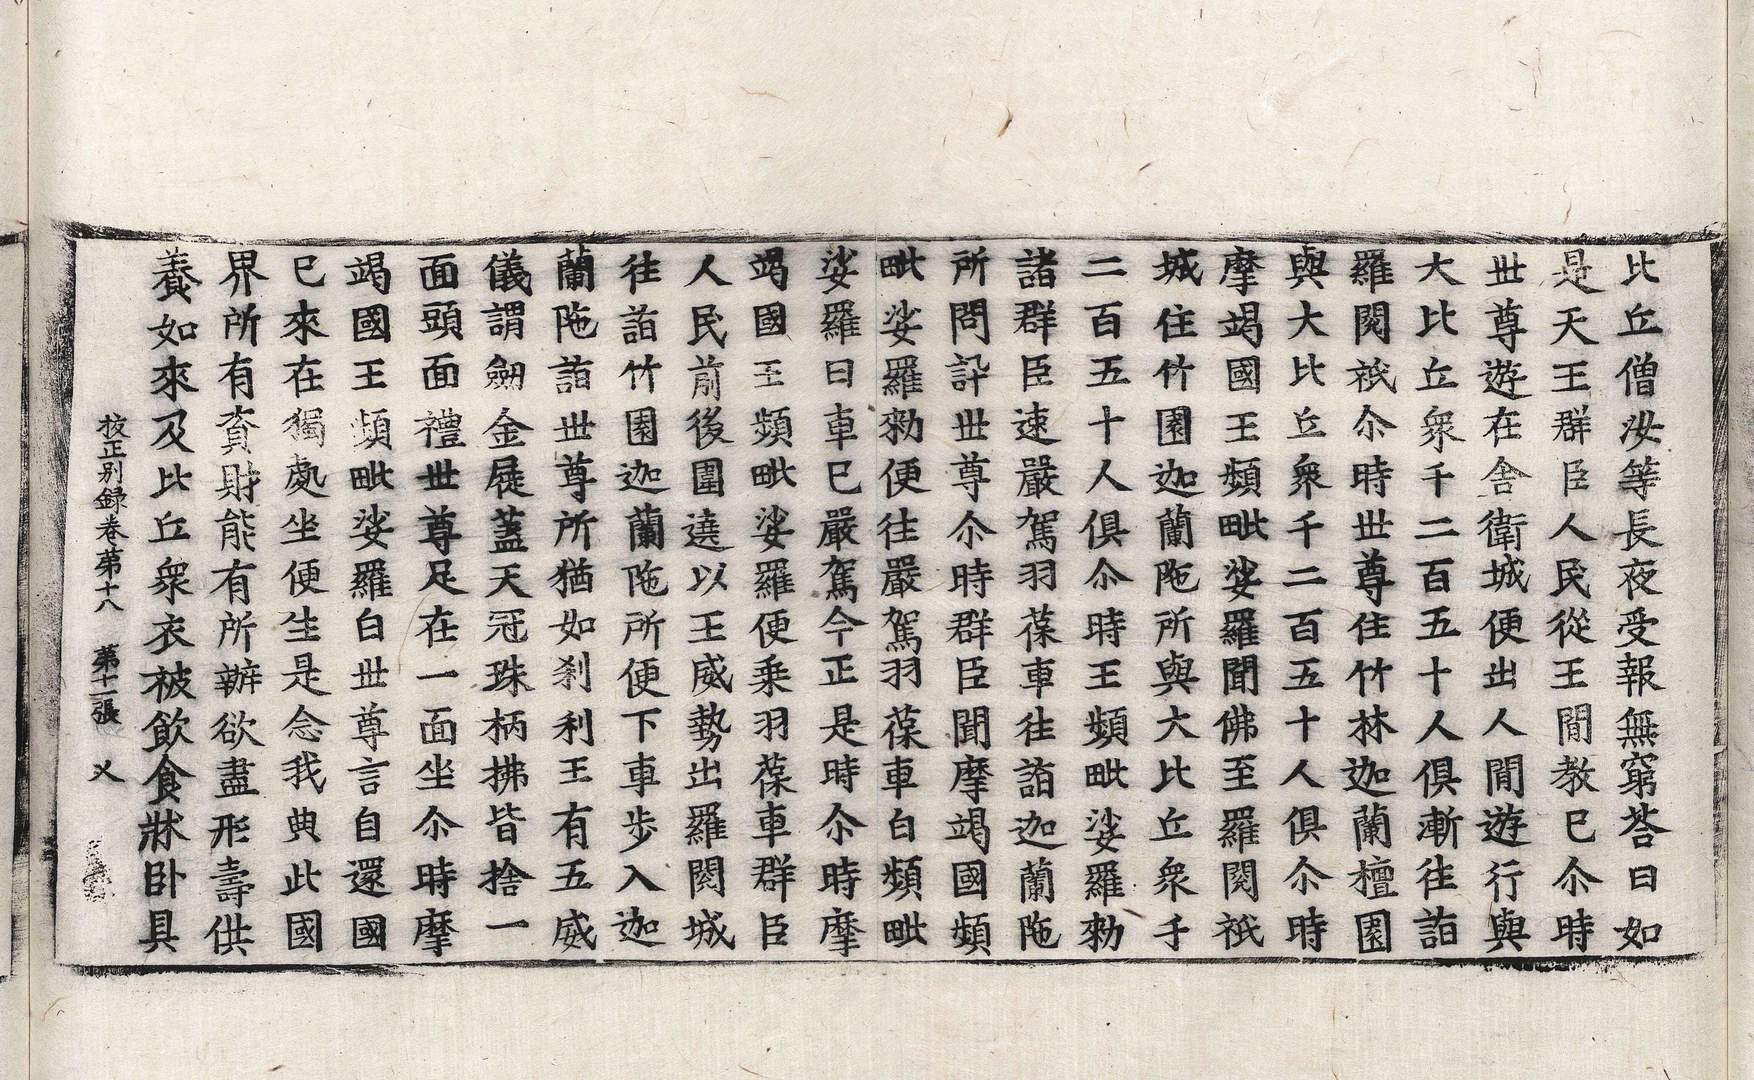 比丘僧汝等長夜受報無窮荅曰如
是天王群臣人民從王閒教已尒時
世尊遊在舍衛城便出人閒遊行與
大比丘衆千二百五十人俱漸往詣
羅閱祇尒時世尊住竹林迦蘭檀園
與大比丘衆千二百五十人俱尒時
摩竭國王頻毗娑羅聞佛至羅閱祇
城住竹園迦蘭陁所與大比丘衆千
二百五十人俱尒時王頻毗娑羅勑
諸群臣速嚴駕羽葆車往詣迦蘭陁
所問訊世尊尒時群臣聞摩竭國頻
毗娑羅勑便往嚴駕羽葆車白頻毗
娑羅曰車已嚴駕今正是時尒時摩
竭國王頻毗娑羅便乗羽葆車群臣
人民前後圍遶以王威勢出羅閱城
往詣竹園迦蘭陁所便下車步入迦
蘭陁詣世尊所猶如刹利王有五威
儀謂劒金屣蓋天冠珠柄拂皆捨一
面頭面禮世尊足在一面坐尒時摩
竭國王頻毗娑羅白世尊言自還國
已來在獨處坐便生是念我典此國
界所有資財能有所辦欲盡形壽供
養如來及比丘衆衣被飲食牀卧具
校正别録卷第十八 第十二張 乂